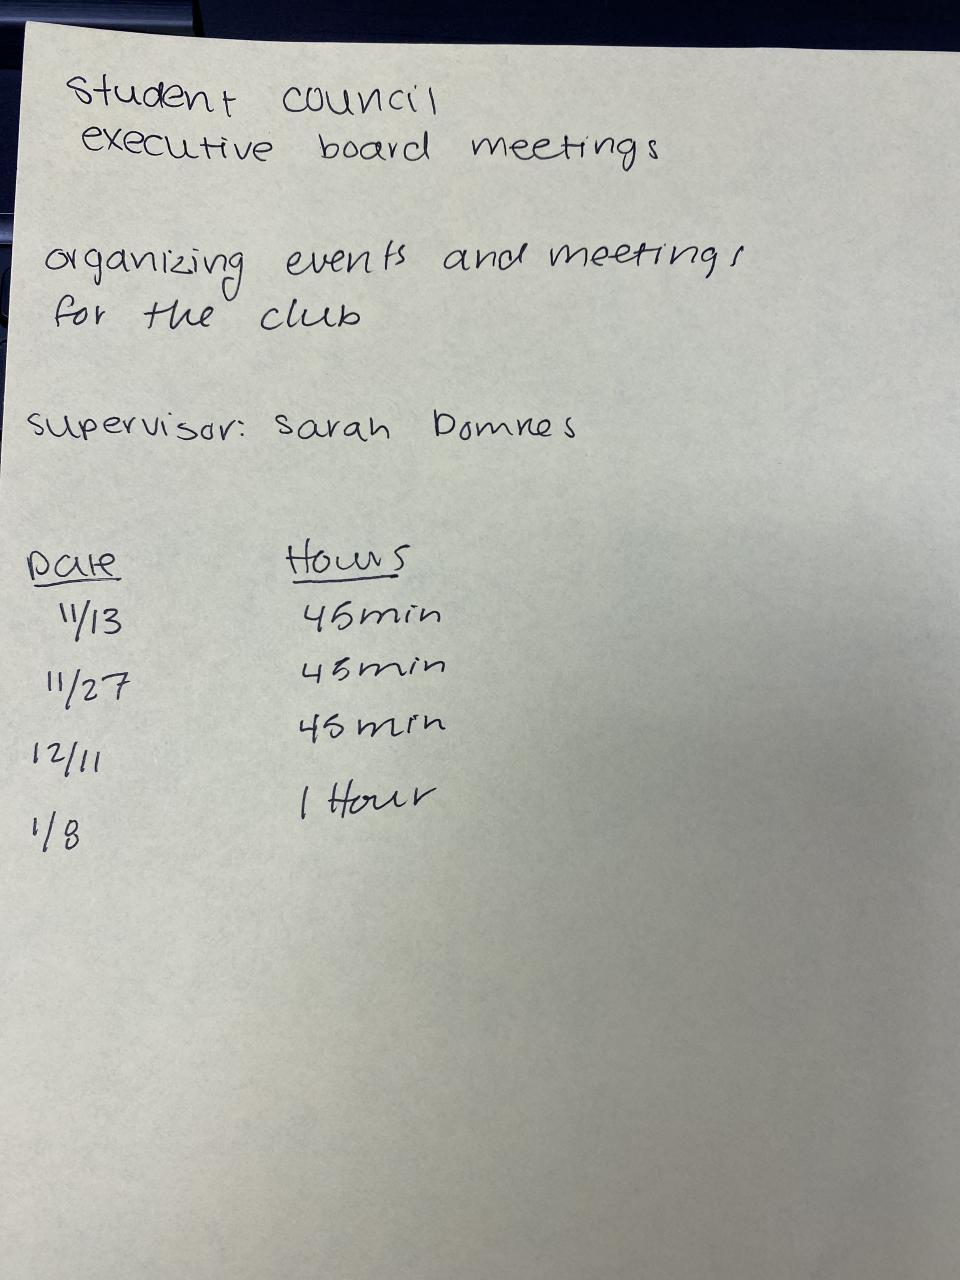 student council
executive board meetings
organizing events and meetings
for the club
supervisor: Sarah Domres
Date Hours
11/13 45min
11/27 45min
12/11 45min
1/8 1 Hour